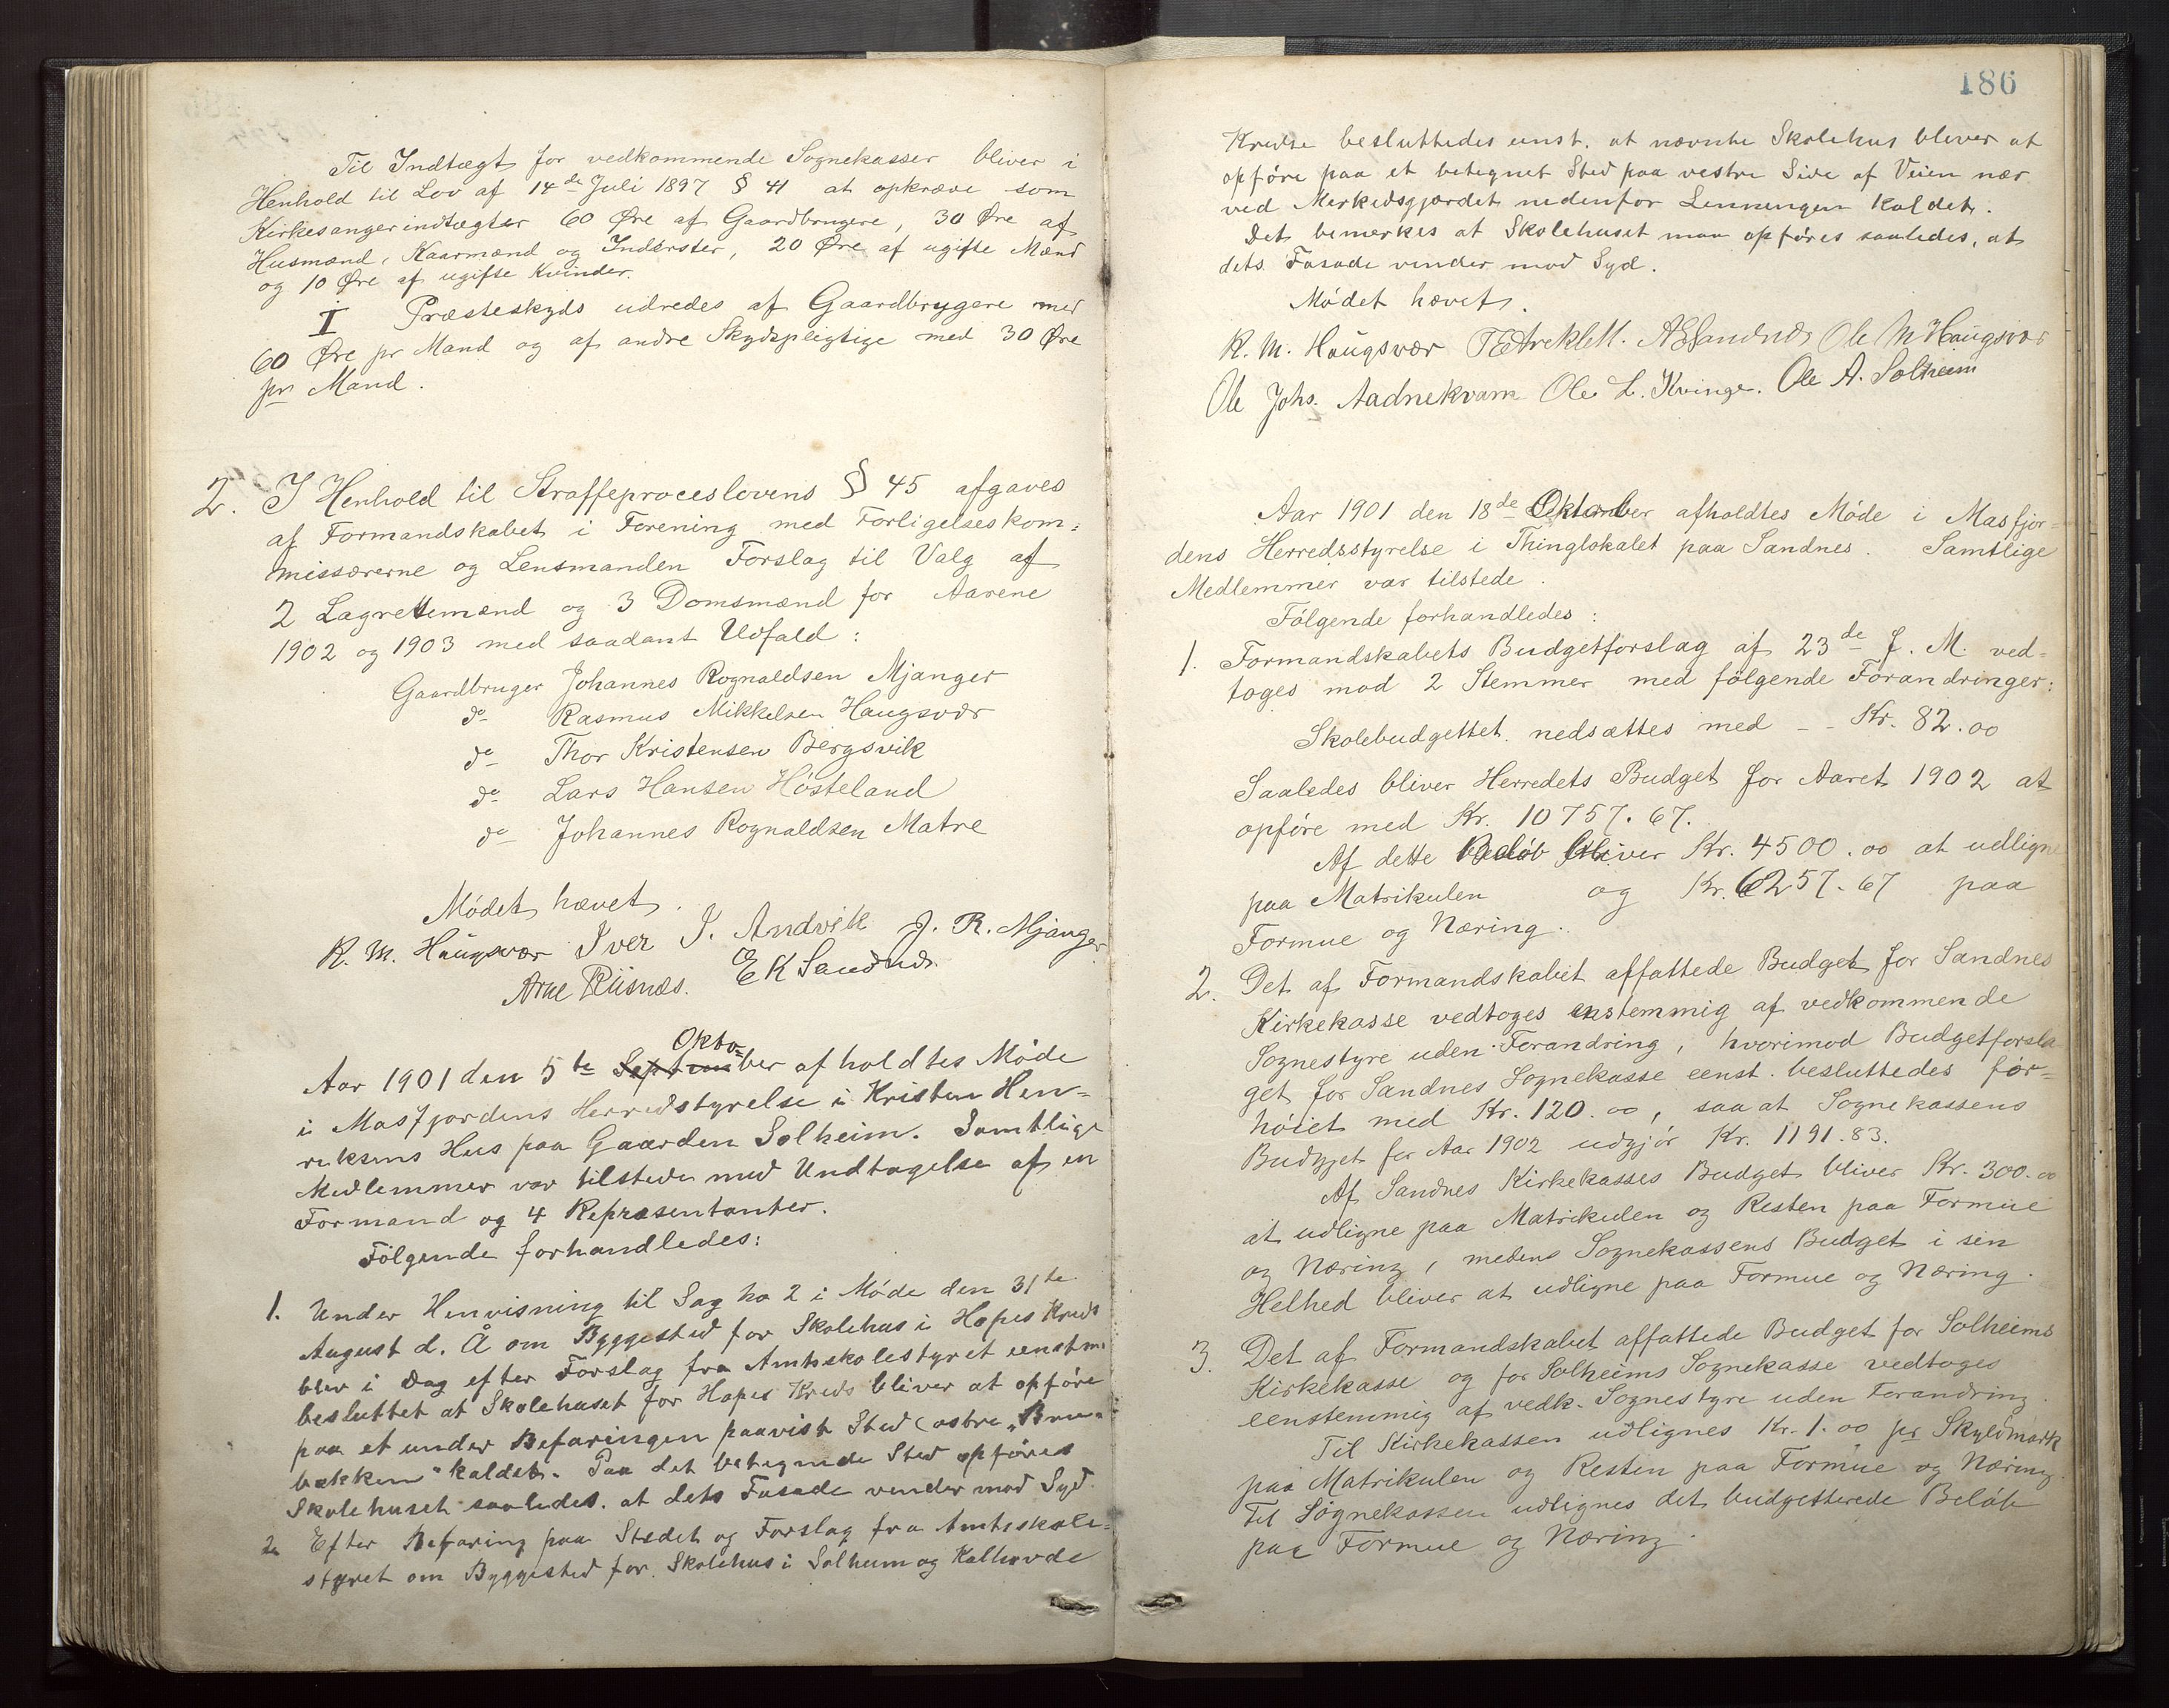 Til Indtægt for vedkommende Sognekasser bliver i
Henhold til Lov af 14de Juli 1897 § 41 at opkræve som
Kirkesangerindtægter 60 Øre af Gaardbrugere, 30 Øre af
Husmænd, Kaarmænd og Inderster, 20 Øre af ugifte Mænd
og 10 Øre af ugifte Kvinder.
I Præsteskyds udredes af Gaardbrugere med
60 Øre pr Mand og af andre Skydspligtige med 30 Øre
pr Mand.
2. I Henhold til Straffeproceslovens § 45 afgaves
af Formandskabet i Forening med Forligelseskom-
missærerne og Lensmanden Forslag til Valg af
2 Lagrettemænd og 3 Domsmænd for Aarene
1902 og 1903 med saadant Udfald:
Gaardbruger Johannes Rognaldsen Mjanger
do Rasmus Mikkelsen Haugsvær
do Thor Kristensen Bergsvik
do Lars Hansen Hósteland
do Johannes Rognaldsen Matre
Módet hævet.
R. M. Haugsvær Iver I. Andvik J. R. Mjanger
Arne Riisnæs. E K Sandnes
Aar 1901 den 5te Septem Okto=ber afholdtes Móde
i Masfjordens Herredstyrelse i Kristen Hen-
riksens Hus paa Gaarden Solheim. Samtlige
Medlemmer var tilstede med Undtagelse af en
Formand og 4 Repræsentanter.
Fólgende forhandledes:
1. Under Henvisning til Sag no 2 i Móde den 31te
August d. Å om Byggested for Skolehus i Hopes Kreds
blev i Dag efter Forslag fra Amtsskolestyret eenstm.
besluttet at Skolehuset for Hopes Kreds bliver at opfóre
paa et under Befaringen paavist Sted (østre „Bru-
bækken“ kaldet. Paa det betegnede Sted opfóres
Skolehuset saaledes. at dets Fasade vender mod Syd.
2. Efter Befaring paa Stedet og Forslag fra Amtsskole-
styret om Byggested for Skolehus i Solheim og Kalhovde
186
Kredse besluttedes eenst. at nævnte Skolehus bliver at
opfóre paa et betegnet Sted paa vestre Side af Veien nær
ved Merkedsgjærdet nedenfor Lenningen kaldet.
Det bemerkes at Skolehuset maa opfóres saaledes, at
dets Fasade vender mod Syd.
Módet hævet.
R. M. Haugsvær Ole M Haugsvær
Ole Johs. Aadnekvam Ole L. Kvinge. Ole A. Solheim
Aar 1901 den 18de Oktober afholdtes Móde i Masfjor-
dens Herredsstyrelse i Thinglokalet paa Sandnes. Samtlige
Medlemmer var tilstede.
Fólgende forhandledes:
1. Formandskabets Budgetforslag af 23de f. M. ved-
toges mod 2 Stemmer med fólgende Forandringer:
Skolebudgettet nedsættes med - - Kr. 82.00
Saaledes bliver Herredets Budget for Aaret 1902 at
opfóre med Kr. 10757.67.
Af dette Belób bliver Kr. 4500.00 at udligne
paa Matrikulen og Kr. 6257.67 paa
Formue og Næring.
2. Det af Formandskabet affattede Budget for Sandnes
Kirkekasse vedtoges enstemmig af vedkommende
Sognestyre uden Forandring, hvorimod Budgetforsla
get for Sandnes Sognekasse eenst. besluttedes for-
hóiet med Kr. 120.00, saa at Sognekassens
Budget for Aar 1902 udgjór Kr. 1191.83.
Af Sandnes Kirkekasses Budget bliver Kr. 300.00
at udligne paa Matrikulen og Resten paa Formue
og Næring, medens Sognekassens Budget i sin
Helhed bliver at udligne paa Formue og Næring.
3. Det af Formandskabet affattede Budget for Solheims
Kirkekasse og for Solheims Sognekasse vedtoges
eenstemmig af vedk. Sognestyre uden Forandring.
Til Kirkekassen udlignes Kr. 1.00 pr Skyldmark
paa Matrikulen og Resten paa Formue og Næring.
Til Sognekassen udlignes det budgetterede Belób
paa Formue og Næring.